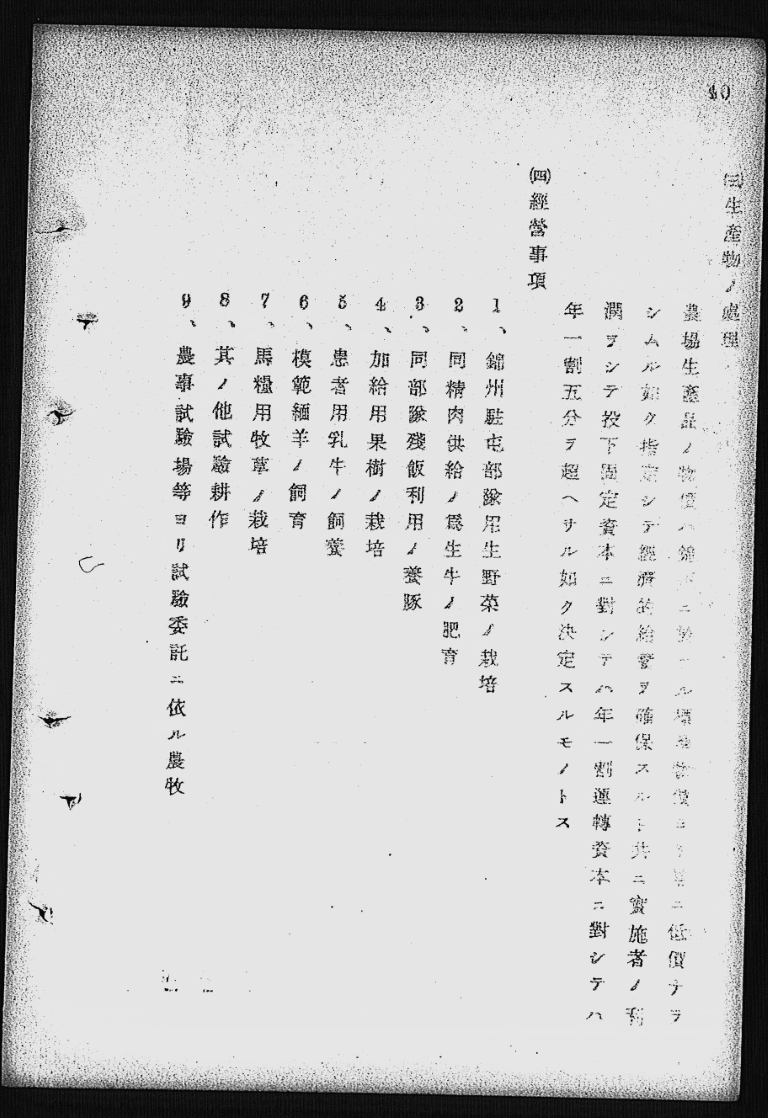 40
㈢生產物ノ處理
農場生產品ノ物價ハ錦ニ於ケル物ニ低價ナラ
シムル如ク指定シテ經濟的給養ヲ確保スルト共ニ實施者ノ利
潤ヲシテ投下固定資本ニ對シテハ年一割運轉資本ニ對シテハ
年一割五分ヲ超ヘサル如ク決定スルモノトス
㈣經營事項
1、錦州駐屯部隊用生野菜ノ栽培
2、同精肉供給ノ爲生牛ノ肥育
3、同部隊殘飯利用ノ養豚
4、加給用果樹ノ栽培
5、患者用乳牛ノ飼養
6、模範緬羊ノ飼育
7、馬糧用牧草ノ栽培
8、其ノ他試驗耕作
9、農事試驗場等ヨリ試驗委託ニ依ル農牧